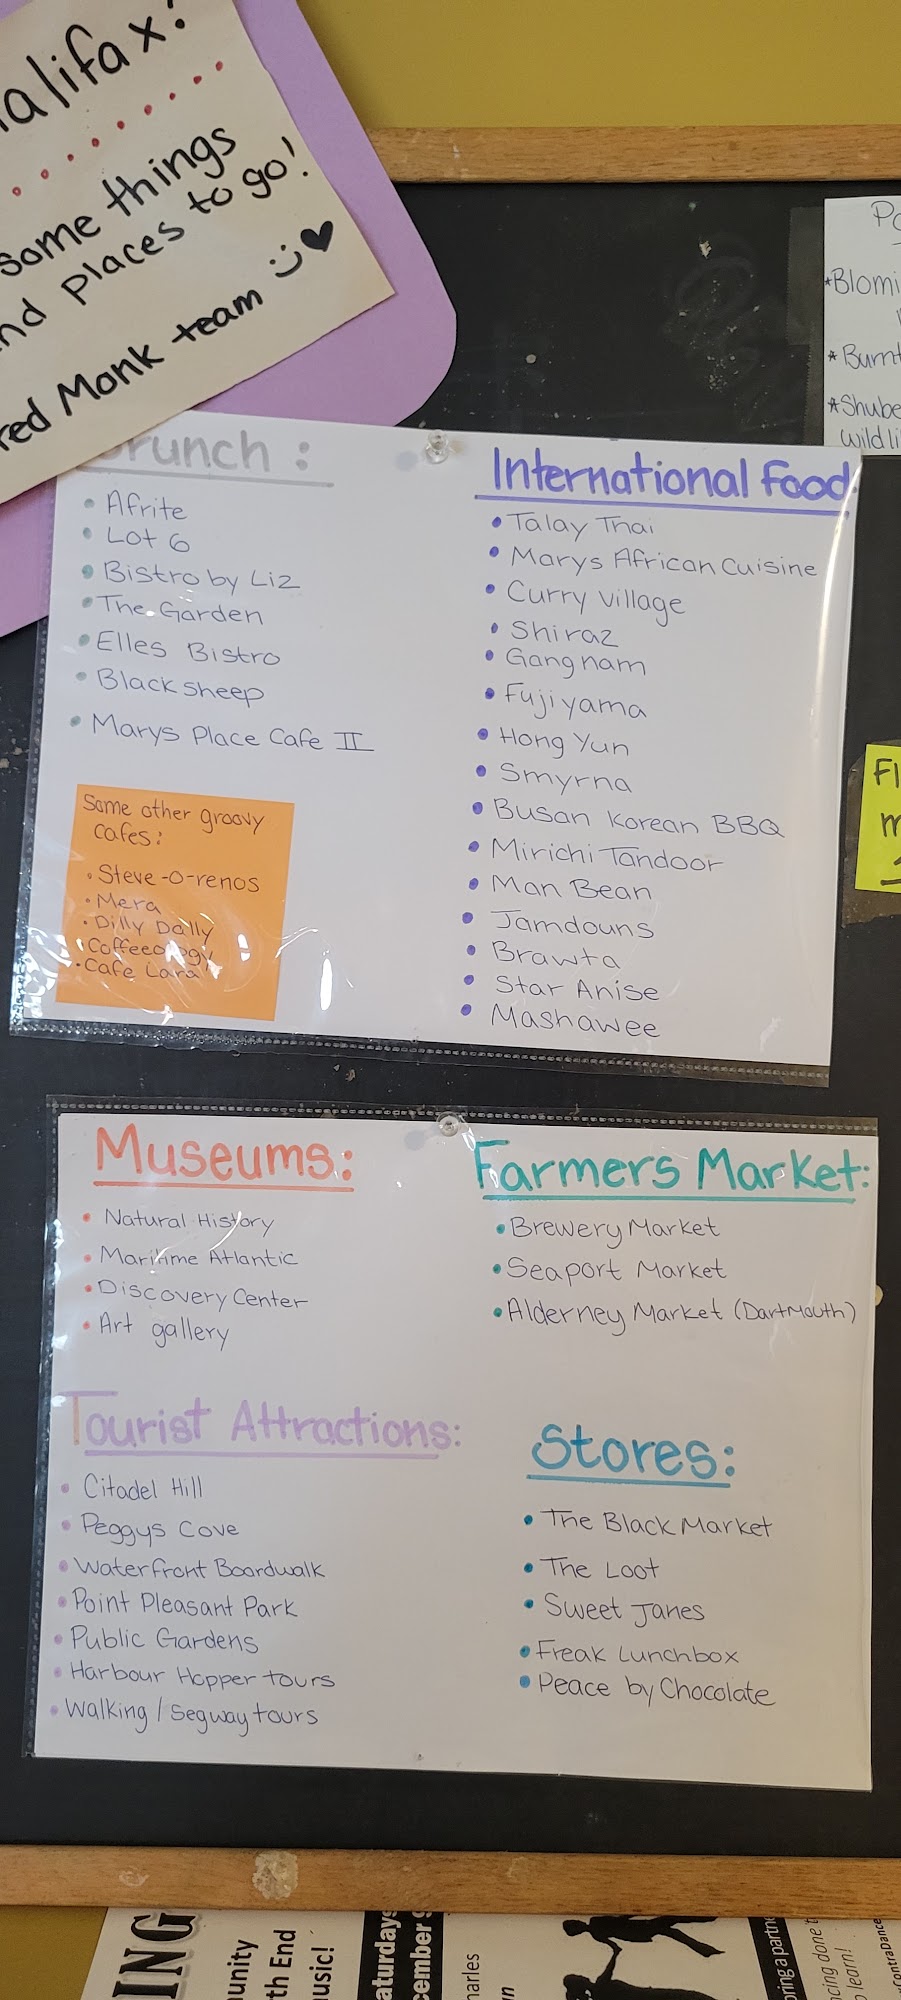 alifax!
some things
nd places to go!
red Monk team
Brunch :
• Afrite
• Lot 6
• Bistro by Liz
• The Garden
• Elles Bistro
• Black sheep
• Marys Place Cafe II
Some other groovy
cafes:
• Steve-o-renos
• Mera
• Dilly Dally
• Coffeeology
• Cafe Lara
International Food
• Talay Thai
• Marys African Cuisine
• Curry village
• Shiraz
• Gangnam
• Fujiyama
• Hong Yun
• Smyrna
• Busan Korean BBQ
• Mirichi Tandoor
• Man Bean
• Jamdouns
• Brawta
• Star Anise
• Mashawee
*Blomi
* Burnt
*Shube
wildli
Fl
m
Museums:
• Natural History
• Maritime Atlantic
• Discovery Center
• Art gallery
Farmers Market:
• Brewery Market
• Seaport Market
• Alderney Market (Dartmouth)
Tourist Attractions:
• Citadel Hill
• Peggys Cove
• Waterfront Boardwalk
• Point Pleasant Park
• Public Gardens
• Harbour Hopper tours
• Walking / Segway tours
Stores:
• The Black Market
• The Loot
• Sweet Janes
• Freak Lunchbox
• Peace by Chocolate
ING
unity
th End
usic!
aturdays
cember 9
harles
ring a partne
cing done t
learn!
contraDance